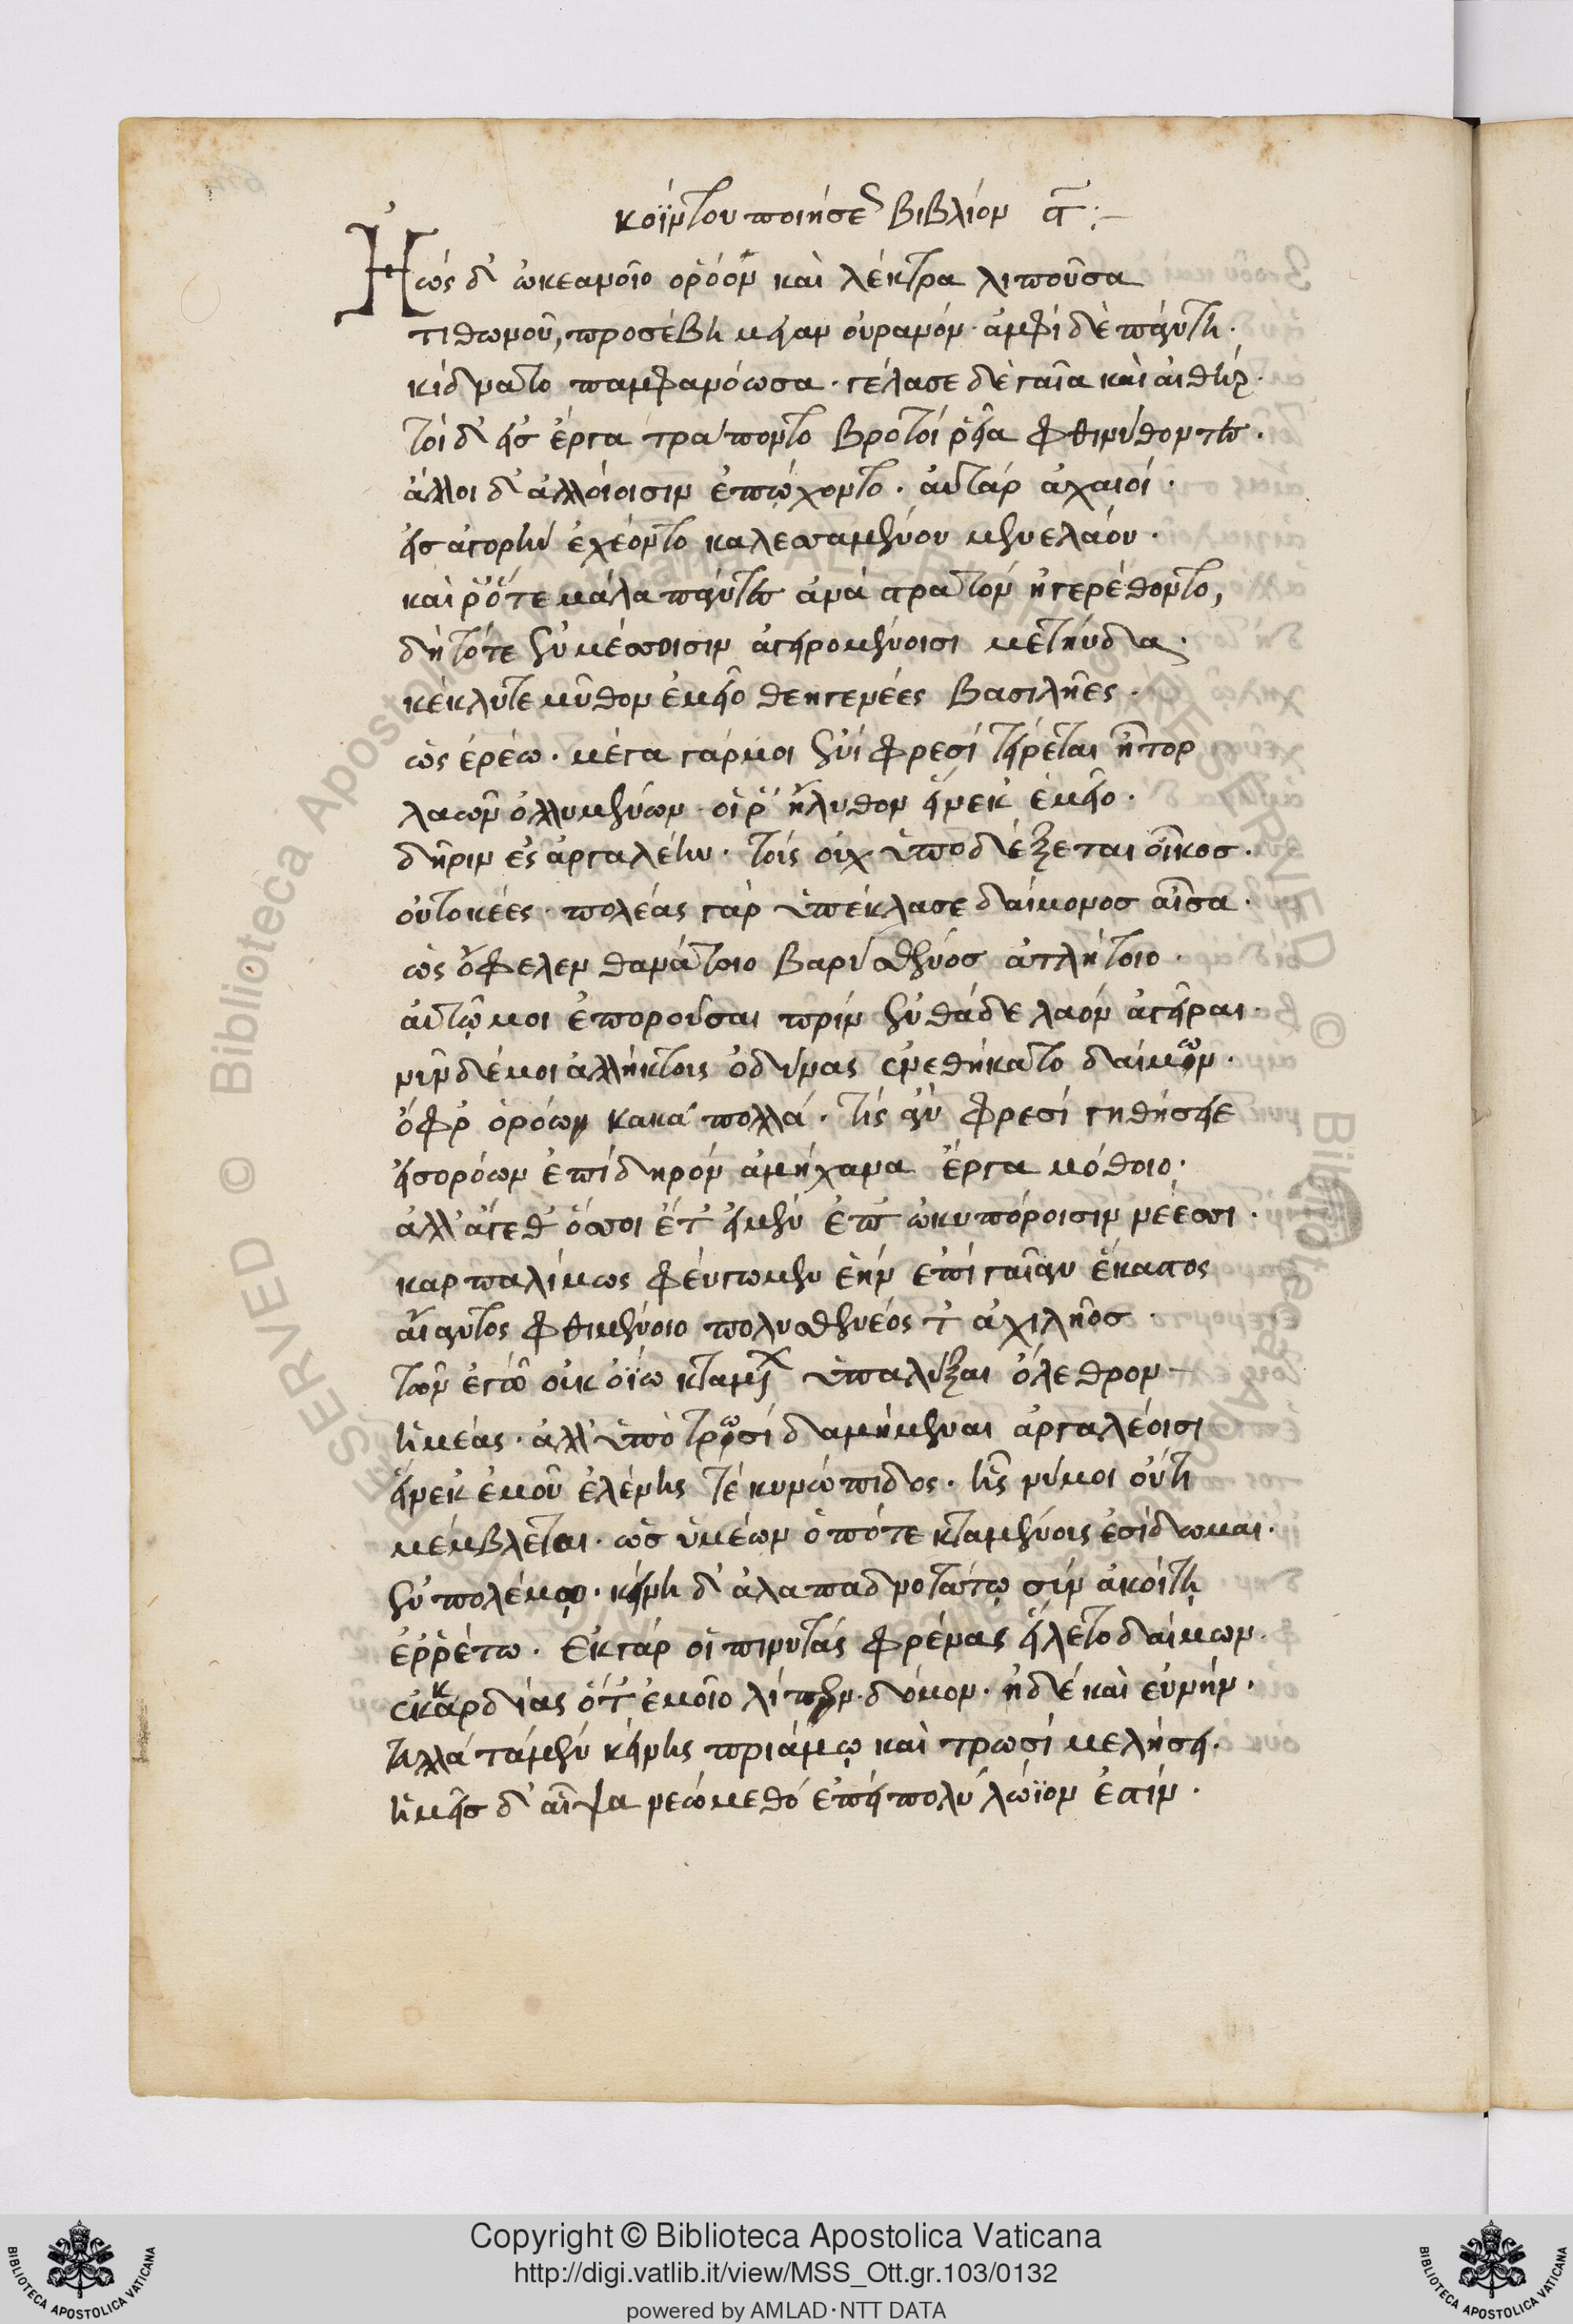 κοΐντου ποιήσεως βιβλίον ϛ̅:-
Ἠὼς δ' ὠκεανοῖο ῥόον καὶ λέκτρα λιποῦσα
τιθωνοῦ, προσέβη μέγαν οὐρανόν· ἀμφὶ δὲ πάντη·
κίδνατο παμφανόωσα· γέλασε δὲ γαῖα καὶ αἰθήρ·
τοὶ δ' εἰς ἔργα τράποντο βροτοὶ ῥεῖα φθινύθοντες·
ἄλλοι δ' ἀλλοίοισιν ἐπῴχοντο· αὐτὰρ ἀχαιοί·
εἰς ἀγορὴν ἐχέοντο καλεσσαμένου μενελάου·
καί ῥ' ὅτε μάλα πάντες ἀνὰ στρατὸν ἠγερέθοντο,
δὴ τότε ἐν μέσσοισιν ἀγειρομένοισι μετηύδα·
κέκλυτε μῦθον ἐμεῖο θεηγενέες βασιλῆες·
ὡς ἐρέω· μέγα γάρ μοι ἐνὶ φρεσὶ τείρεται ἦτορ
λαῶν ὀλλυμένων· οἵ ῥ' ἤλυθον εἵνεκ' ἐμεῖο·
δῆριν ἐς ἀργαλέην· τοὺς οὐχ ὑποδέξεται οἶκος·
οὐ τοκέες· πολέας γὰρ ὑπέκλασε δαίμονος αἶσα·
ὡς ὄφελεν θανάτοιο βαρυσθένος ἀτλήτοιο·
αὐτῷ μοι ἐπορούσαι πρὶν ἐνθάδε λαὸν ἀγεῖραι·
νῦν δέ μοι ἀλλήκτους ὀδύνας ἐνεθήκατο δαίμων·
ὄφρ' ὁρόων κακὰ πολλά· τίς ἂν φρεσὶ γηθήσειε
εἰσορόων ἐπὶ δηρὸν ἀμήχανα ἔργα μόθοιο·
ἀλλ' ἄγεθ' ὅσσοι ἔτ' εἰμὲν ἐπ' ὠκυπόροισιν νέεσσι·
καρπαλίμως φεύγωμεν ἑὴν ἐπὶ γαῖαν ἕκαστος
αἴαντος φθιμένοιο πολυσθενέος τ' ἀχιλῆος·
τῶν ἐγὼ οὐκ ὀΐω κταμένων ὑπαλύξαι ὄλεθρον
ἡμέας· ἀλλ' ὑπὸ τρωσὶ δαμήμεναι ἀργαλέοισι
εἵνεκ' ἐμοῦ ἑλένης τε κυνώπιδος· ἧς νύ μοι οὔτι
μέμβλεται· ὡς ὑμέων ὁπότε κταμένους ἐσίδωμαι·
ἐν πολέμῳ· κείνη δ' ἀλαπαδνοτάτῳ σὺν ἀκοίτῃ
ἐρρέτω· ἐκ γάρ οἱ πινυτὰς φρένας εἵλετο δαίμων·
ἐκ κραδίας ὅτ' ἐμοῖο λίπεν δόμον· ἠδὲ καὶ εὐνήν·
ἀλλὰ τὰ μὲν κείνης πριάμῳ καὶ τρωσὶ μελήσει·
ἡμεῖς δ' αἶψα νεώμεθ' ἐπεὶ πολὺ λώϊον ἐστίν·
Copyright © Biblioteca Apostolica Vaticana
http://digi.vatlib.it/view/MSS_Ott.gr.103/0132
powered by AMLAD·NTT DATA
BIBLIOTECA APOSTOLICA VATICANA
BIBLIOTECA APOSTOLICA VATICANA